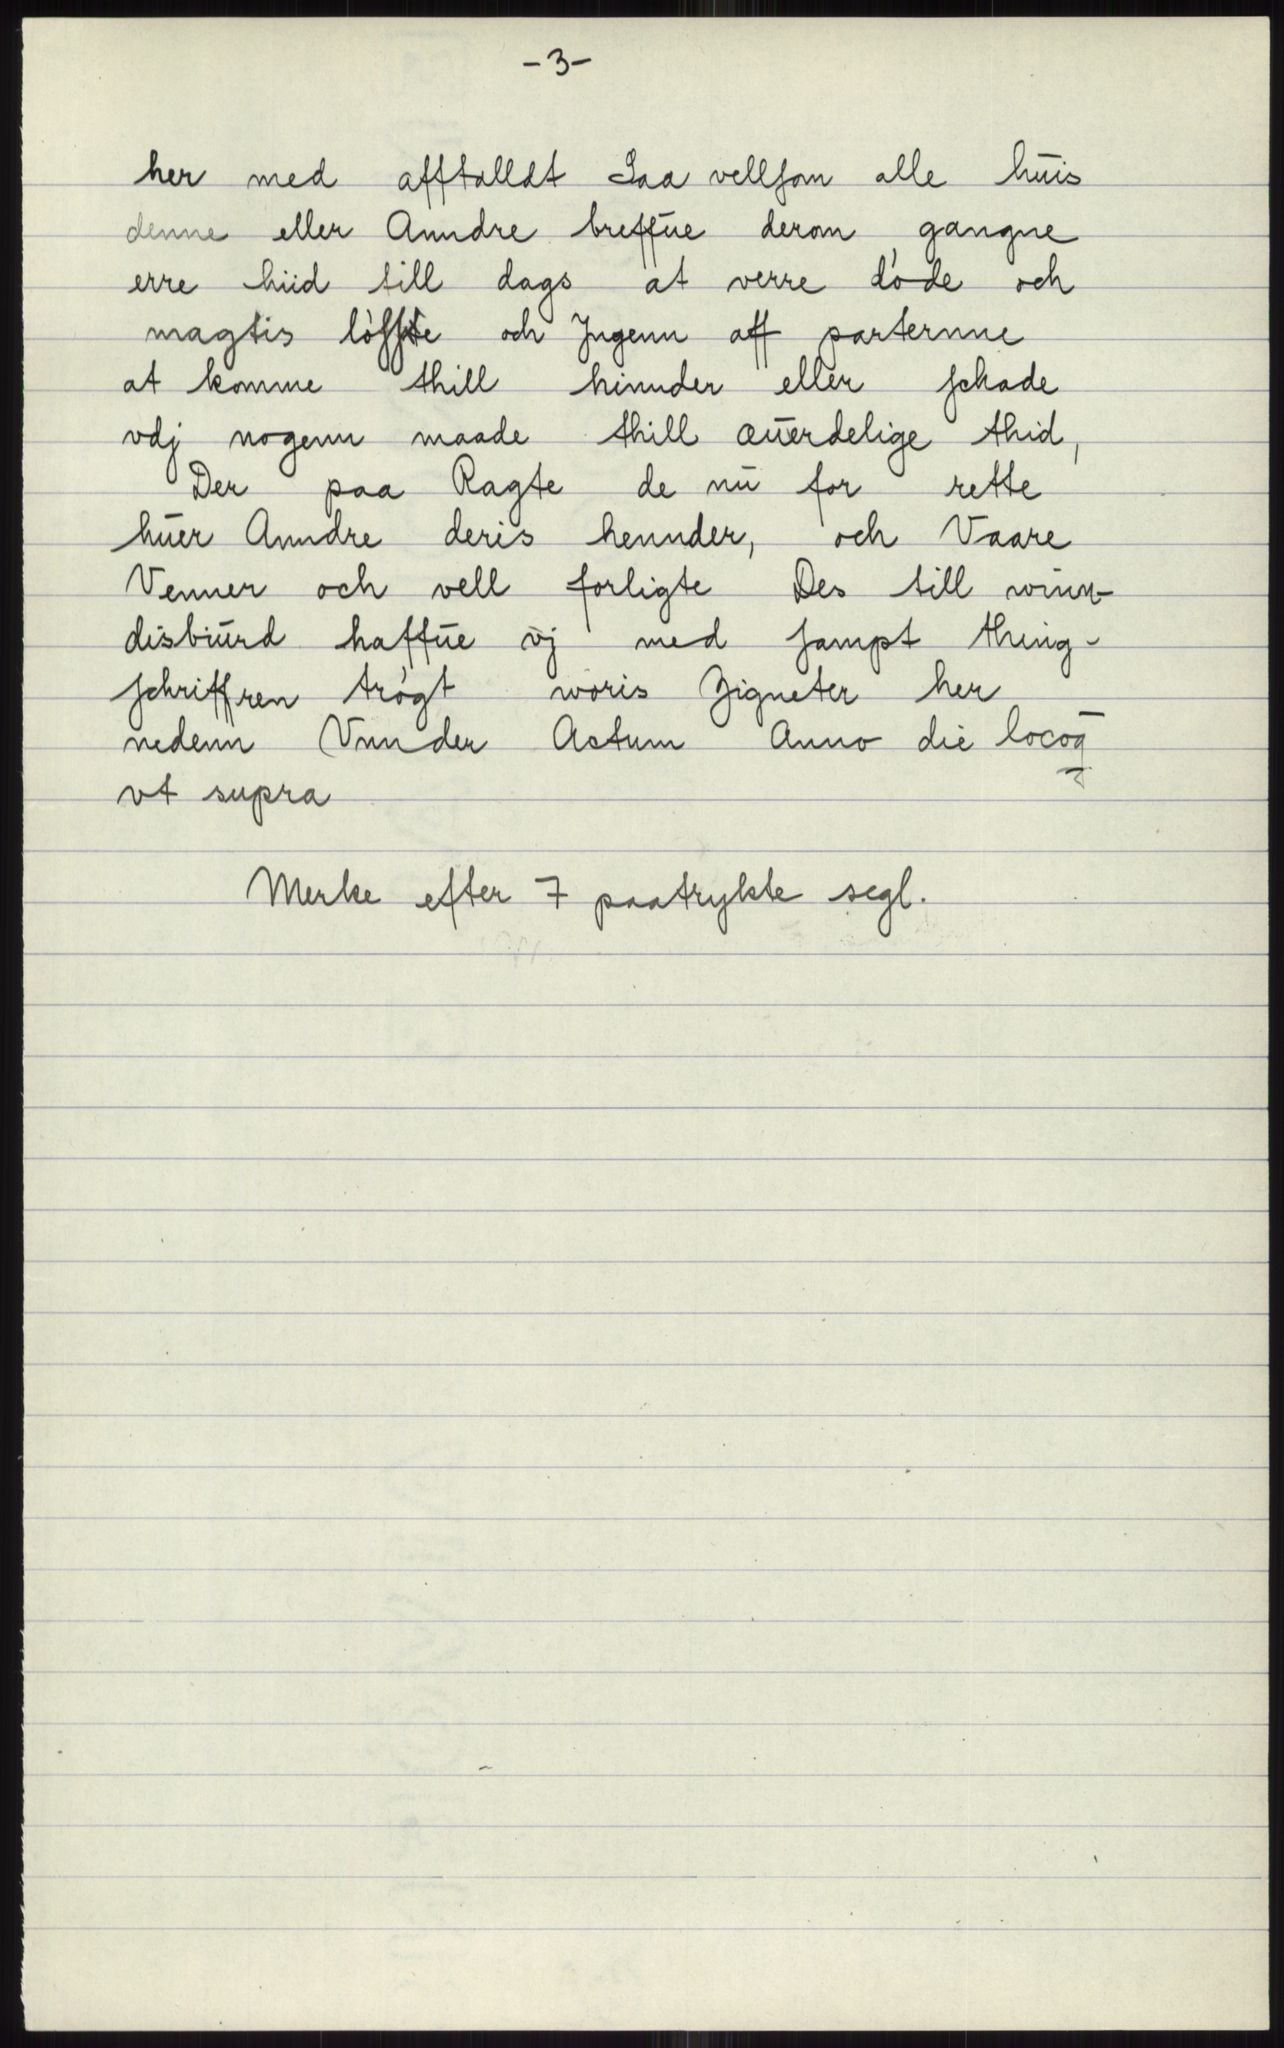 -3-
her med afftalldt Saa vellsom alle huis
denne eller Anndre breffue derom gangne
erre hiid till dags at verre døde och
magtis løsse och Jngenn aff parternne
at komme thill hinnder eller schade
vdj nogenn maade thill æuerdelige thid,
Der paa Ragte de nu for rette
huer Anndre deris hennder, och Vaare
Venner och vell forligte Des till winn-
disbiurd haffue vj med sampt thing-
schriffren trøgt woris Zigneter her
nedenn Vnnder Actum Anno die locoq
vt supra
Merke efter 7 paatrykte segl.